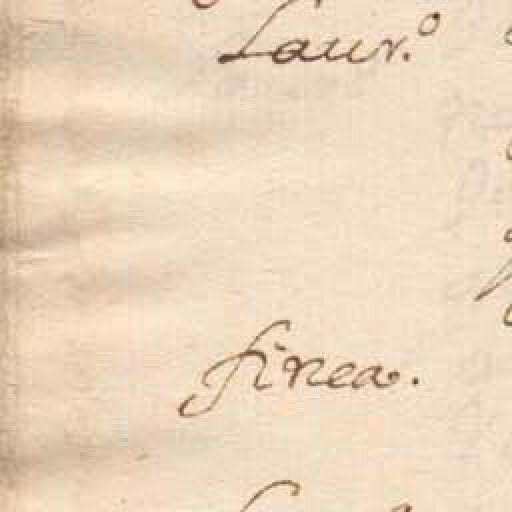 Laur.º
finea.